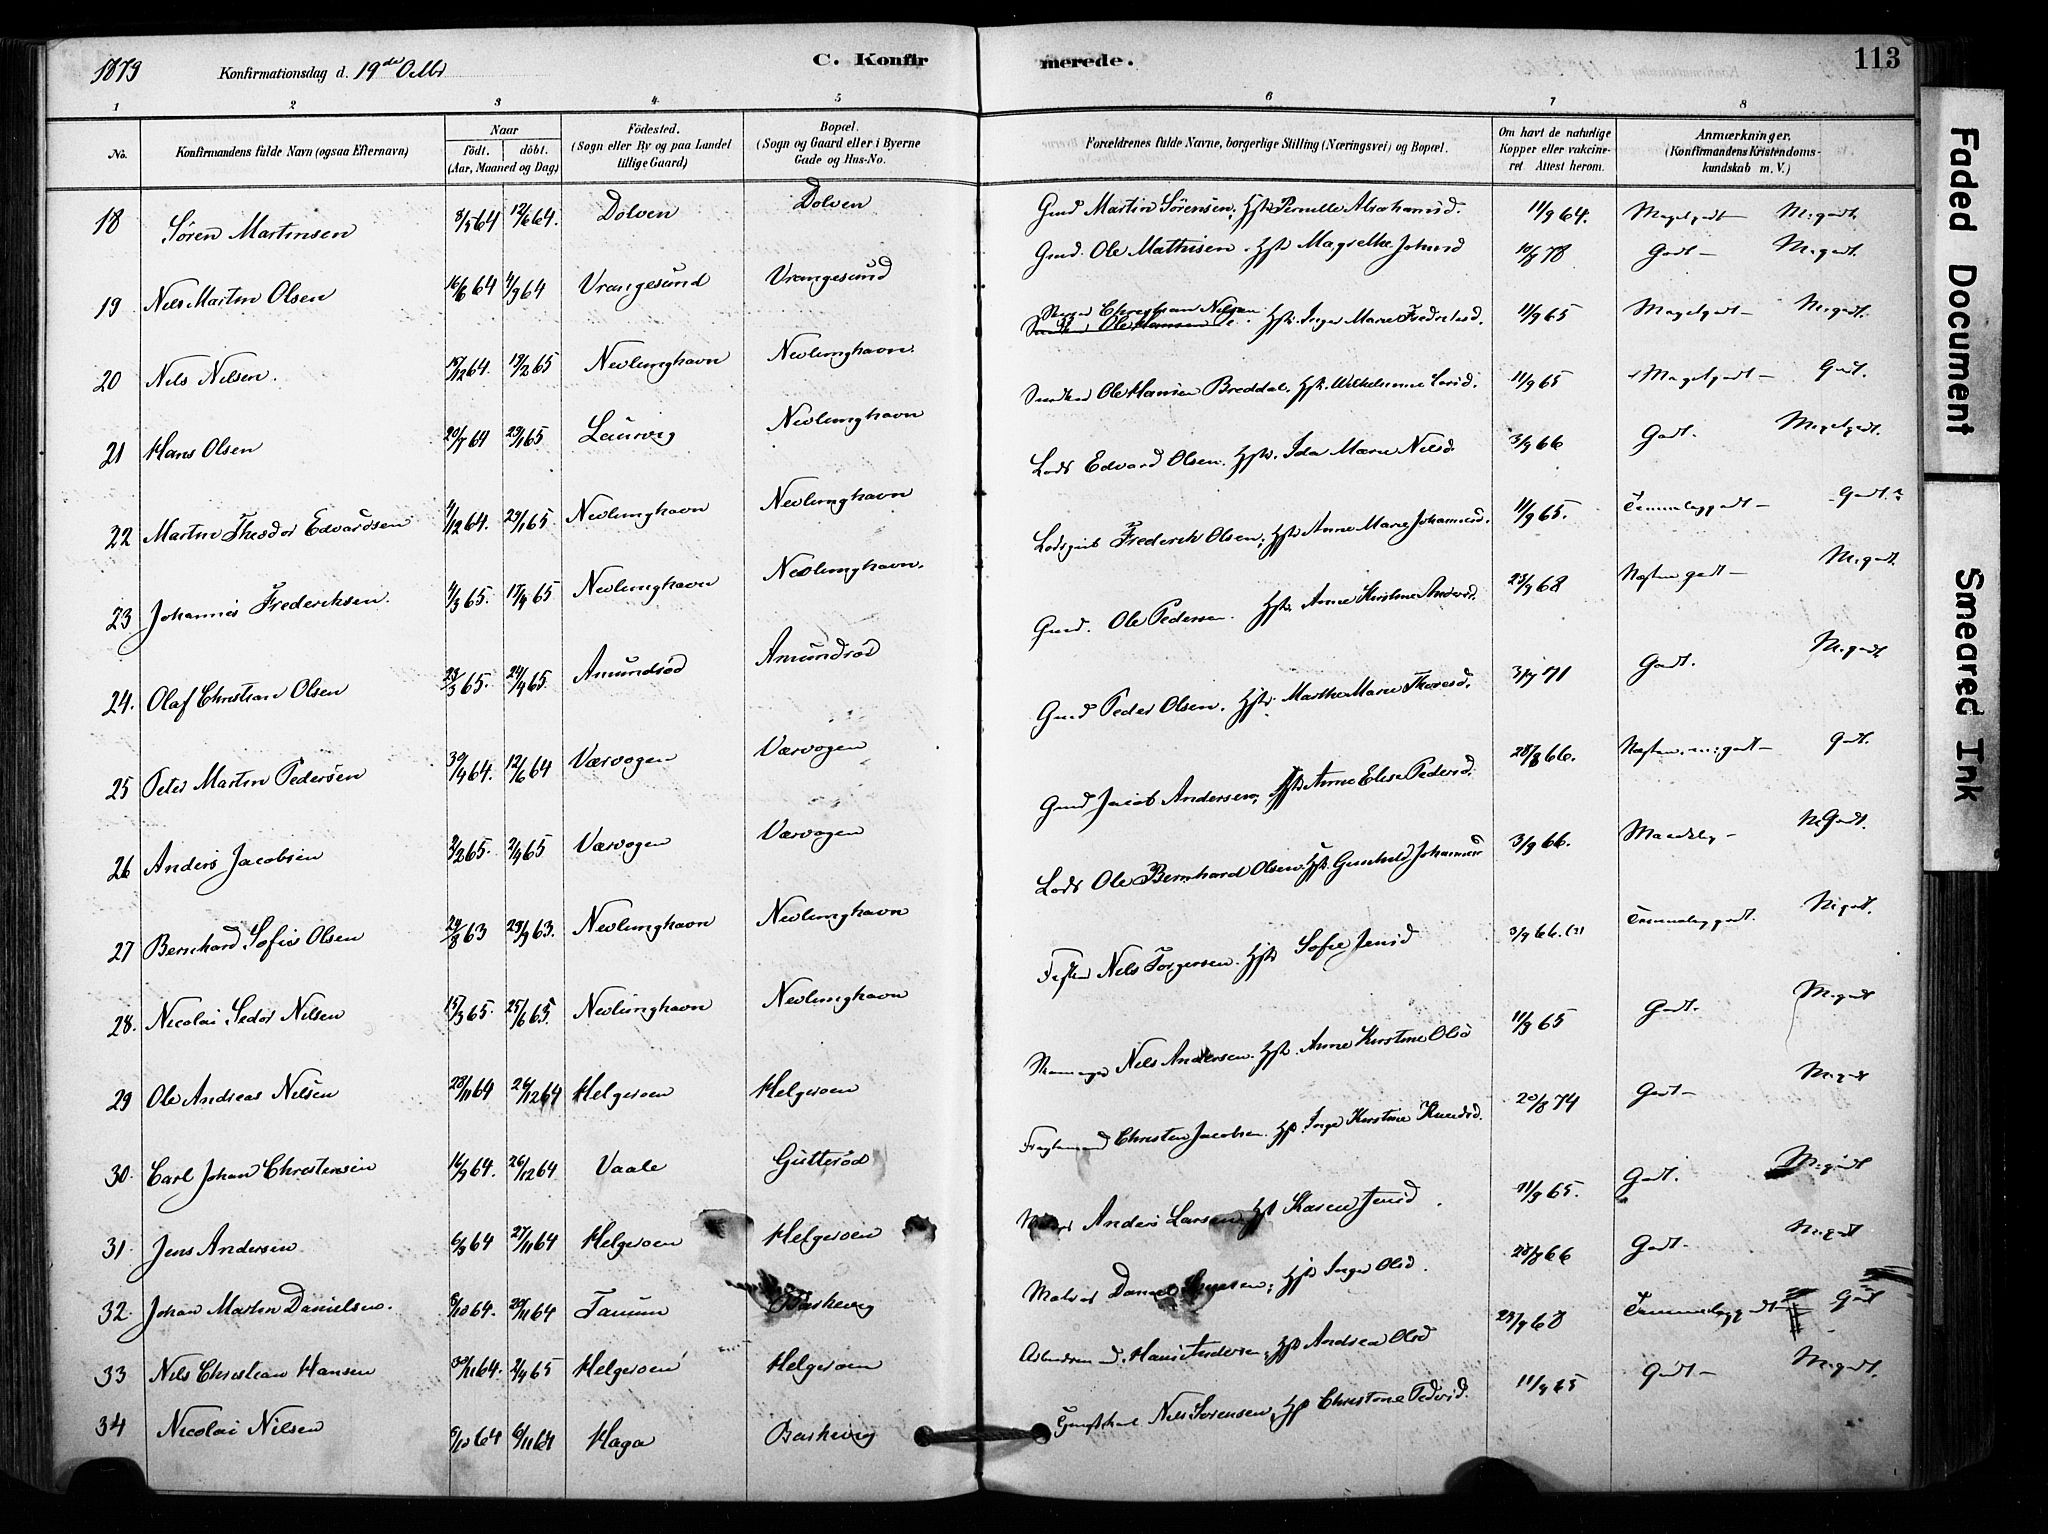 1879 Konfirmationsdag d. 19de Octbr C. Konfirmerede. 113
1 2 3 4 5 6 7 8
No. Konfirmandens fulde Navn (ogsaa Efternavn) Naar födt. döbt. (Aar, Maaned og Dag) Födested. (Sogn eller By og paa Landet tillige Gaard) Bopæl. (Sogn og Gaard eller i Byerne Gade og Hus-No. Forældrenes fulde Navne, borgerlige Stilling (Næringsvei) og Bopæl. Om havt de naturlige Kopper eller vakcineret Attest herom. Anmærkninger. (Konfirmandens Kristendomskundskab m. V.)
18 Søren Martinsen 8/5 64 12/6 64. Dolven Dolven Gmd Martin Sørensen, Hstr Pernille Abrahamsd. 11/9 64. Megetgodt M. godt.
19 Nils Martin Olsen 16/6 64 4/9 64 Vrangesund Vrangesund Gmd. Ole Mathisen. Hstr 10/8 78 Godt M. godt.
20 Nils Nilsen. 15/12 64. 19/2 65 Nevlunghavn Nevlunghavn. Christian Nilsen Hstr. Inger Marie Fredriksd. 11/9 65 Megetgodt M. godt.
21 Hans Olsen 20/7 64 29/1 65 Laurvig Nevlunghavn Ole Hansen Breddal. Hstr. 11/9 65 Megetgodt Godt.
22 Martin Theodor Edvardsen 9/12 64. 29/1 65 Nevlunghavn Nevlunghavn Lods Edvard Olsen. Hstr. Ida Marie Nilsd. 3/9 66 Godt. Megetgodt.
23 Johannes Frederiksen. 4/3 65. 17/4 65 Nevlunghavn Nevlunghavn. Frederik Olsen; Hstr Anne Marie Johannesd. 11/9 65. Temmeliggodt Godt.
24. Olaf Christian Olsen 23/3 65. 24/4 65. Amundsød Amundsød Gmd. Ole Pedersen. Hstr. Anne Kirstine Andersd. 23/9 68 Næsten godt M. godt.
25 Peter Martin Pedersen 30/4 64. 12/6 64 Værvogen Værvogen Gmd Peder Olsen. Hstr. Marthe Marie Thoresd. 3/7 71 Godt. M. godt
26 Anders Jacobsen 2/2 65. 2/4 65 Værvogen Værvogen Gmd Jacob Andersen, Hstr Anne Elise Pedersd. 28/8 66. Næsten m. godt Godt.
27 Bernhard Sofus Olsen 24/8 63 29/9 63. Nevlunghavn Nevlunghavn Lods Ole Bernhard Olsen Hstr. Gunhild 3/9 66. M. Godt.
28. Nicolai Sedor Nilsen 15/3 65. 25/6 65. Nevlunghavn Nevlunghavn Nils Torgersen. Hstr Sofie Jensd 3/9 66. Temmeliggodt. M. godt.
29 Ole Andreas Nilsen 28/11 64 26/12 64 Helgeroen Helgeroen Nils Andersen. Hstr. Anne Kirstine Olsd 11/9 65 Godt. M. godt
30. Carl Johan Christensen 16/9 64. 26/12 64 Vaale Gutterød Christen Jacobsen. Hstr. Inger Kirstine Knudsd. 20/8 74 Godt M. godt
31. Jens Andersen 6/9 64 27/11 64 Helgeroen Helgeroen Anders Larsen Hstr Karen Jensd. 11/9 65. Godt. M. godt
32. Johan Martin Danielsen. 6/10 64. 20/11 64 Tanum Barkevig Matros Daniel Hstr Inger Olsd. 28/8 66 Godt M. godt
33 Nils Christian Hansen 30/11 64. 2/4 65 Helgeroen Helgeroen Hans Andersen, Hstr Andrea Olsd 23/9 68 Temmeliggodt Godt
34 Nicolai Nilsen 6/10 64 6/11 64 Haga Barkevig Nils Sørensen, Hstr Christine Pedersd. 11/9 65 Godt M. godt.
Faded Document
Smeared Ink